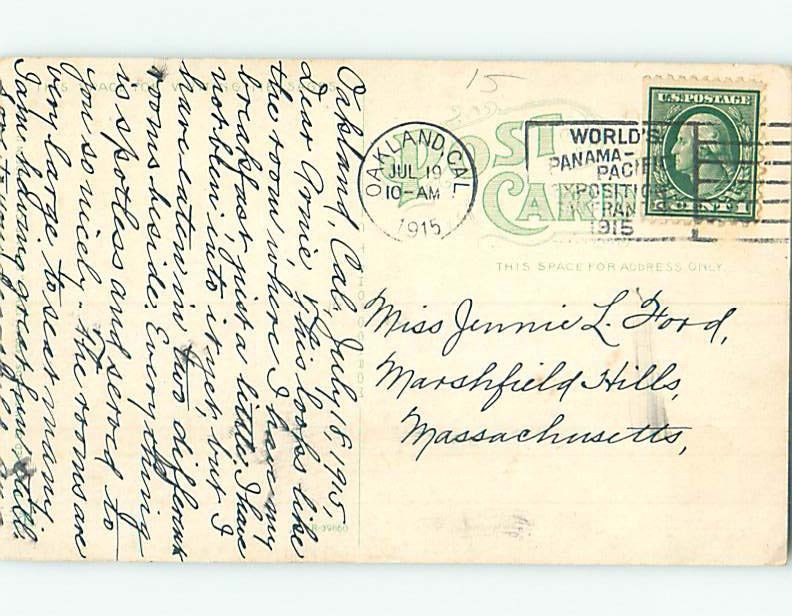 Oakland, Cal, July 18, 1915,
Dear Tomie, This looks like
the room where I have my
breakfast, just a little. I have
not been into it yet, but I
have eaten in two different
rooms beside. Everything
is spotless and served to
you so nicely. The rooms are
very large to seat many.
I am having great fun with
15
OAKLAND, CAL.
JUL 19
10-AM
1915
WORLD'S
PANAMA-
PACIFIC
EXPOSITION
FRAN
1915
U.S. POSTAGE
CENT 1
POST
CARD
THIS SPACE FOR WRITING MESSAGES
THIS SPACE FOR ADDRESS ONLY.
Miss Jennie L. Ford,
Marshfield Hills,
Massachusetts,
R-39660